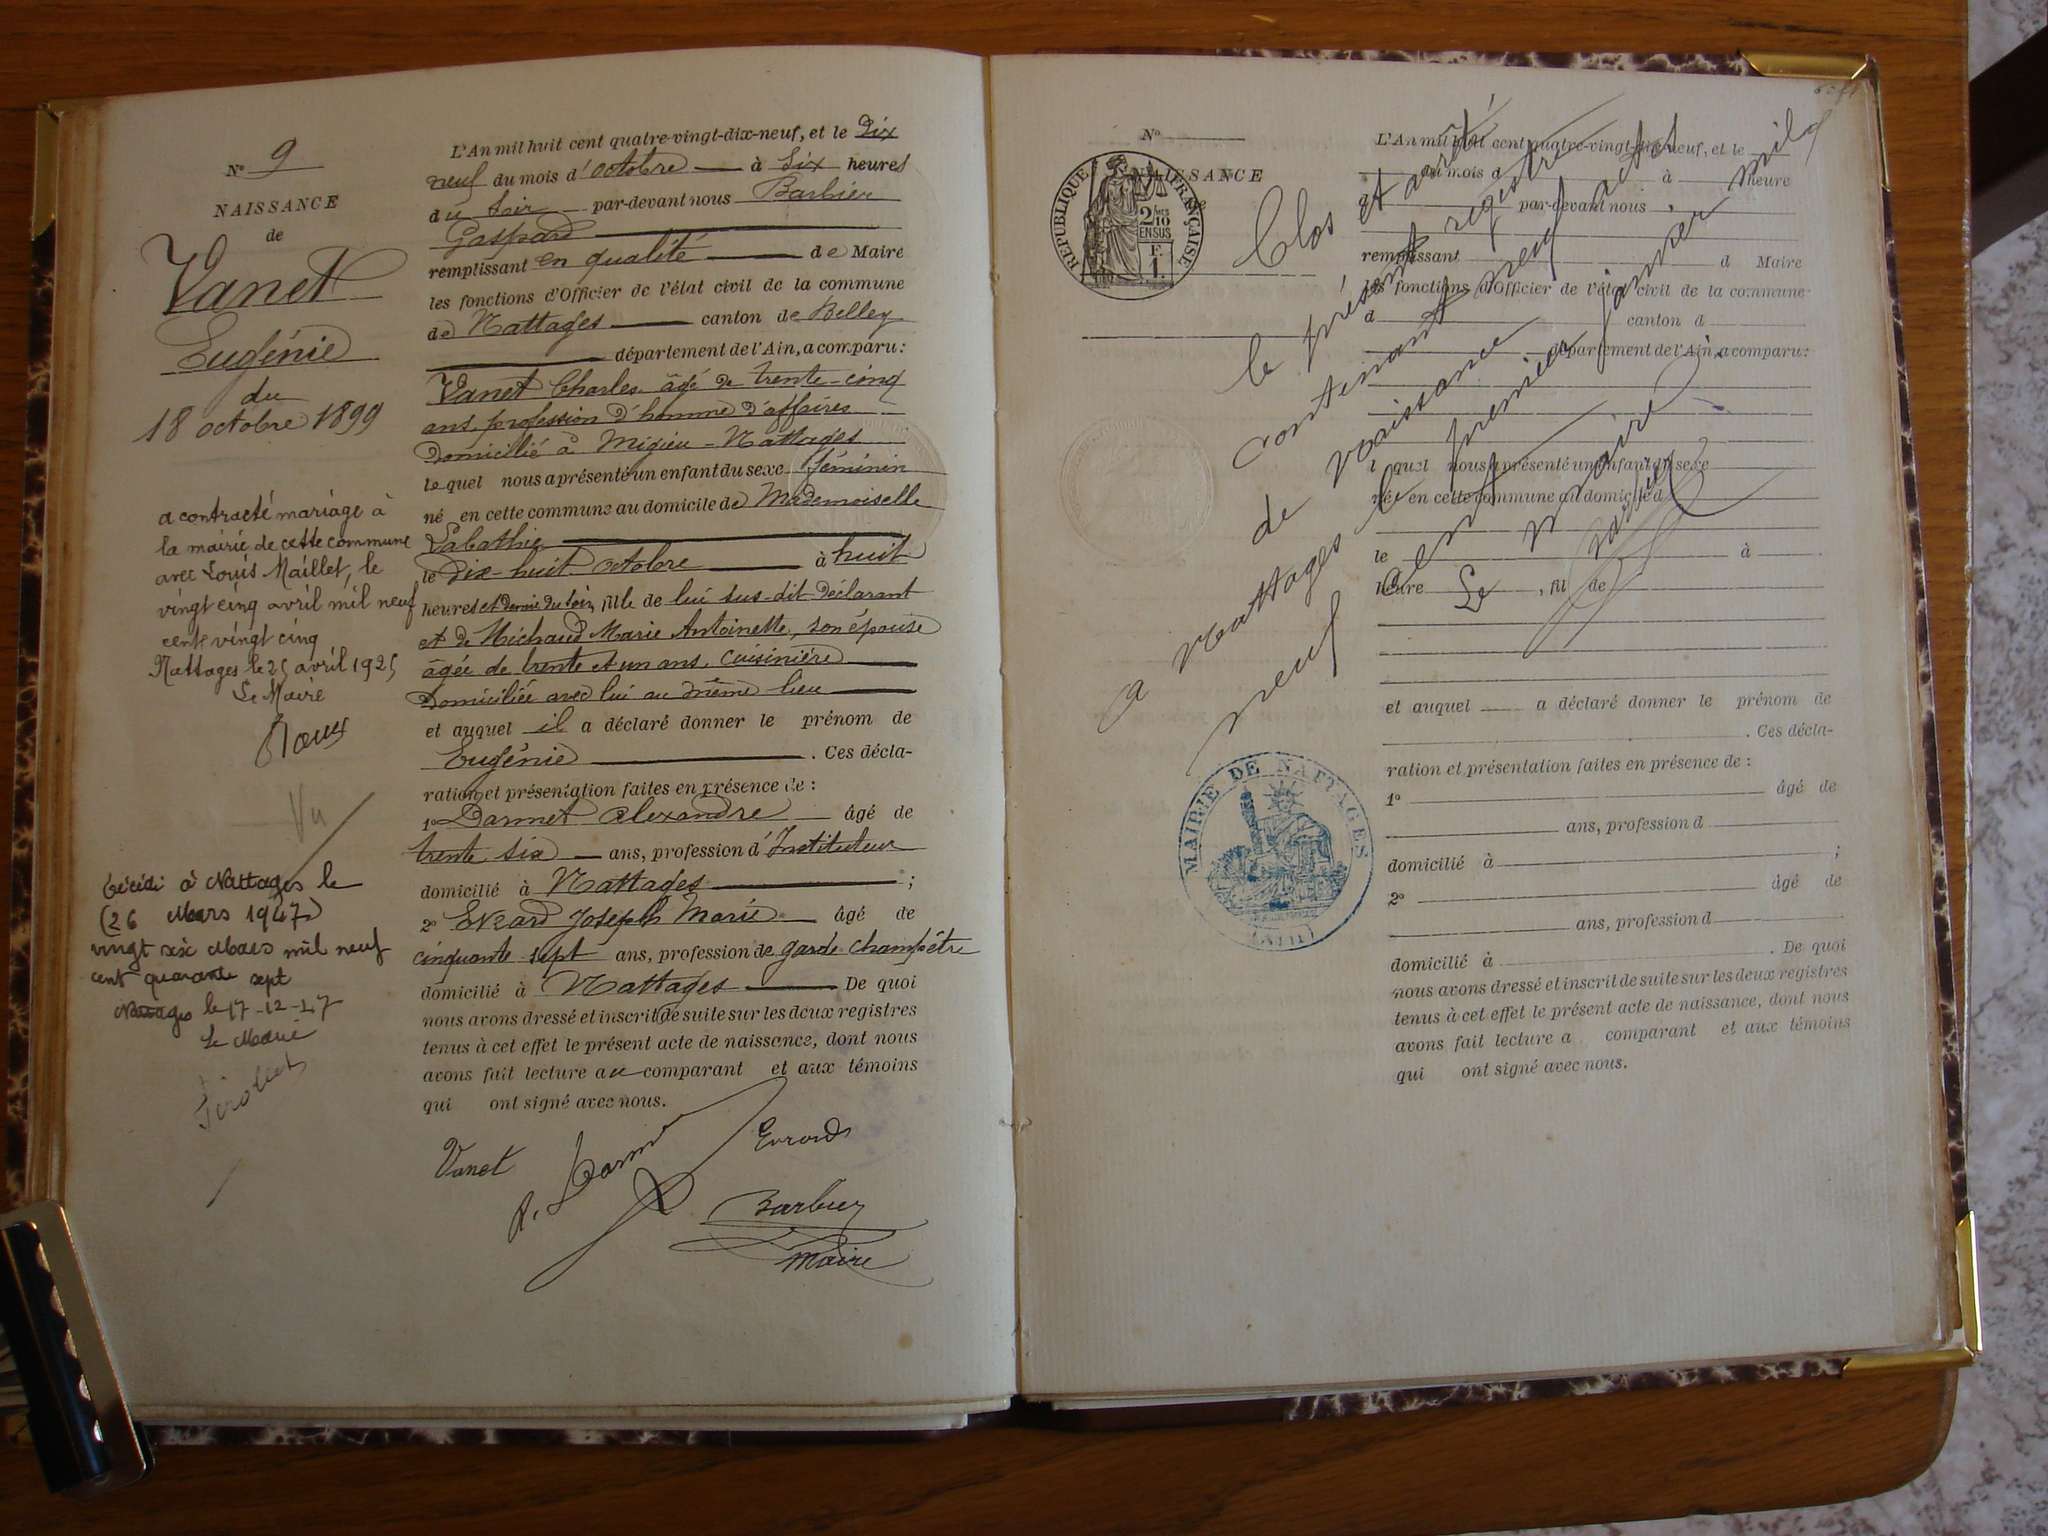 N° 9
NAISSANCE
de
Vanet
Eugénie
du
18 octobre 1899
a contracté mariage à
la mairie de cette commune
avec Louis Maillet, le
vingt cinq avril mil neuf
cent vingt cinq
Nattages le 25 avril 1925
Le Maire
Roux
Vu
Décédé à Nattages le
(26 Mars 1947)
vingt six Mars mil neuf
cent quarante sept
Nattages le 17-12-47
Le Maire
L'An mil huit cent quatre-vingt-dix-neuf, et le Dix
neuf du mois d'octobre à Six heures
du soir par-devant nous Barbier
Gaspard
remplissant en qualité de Maire
les fonctions d'Officier de l'état civil de la commune
de Nattages canton de Belley
département de l'Ain, a comparu :
Vanet Charles âgé de trente-cinq
ans, profession d'homme d'affaires
Domicilié à Migieu-Nattages
lequel nous a présenté un enfant du sexe féminin
né en cette commune au domicile de Mademoiselle
Labathie
le dix-huit octobre à huit
heures et demie du soir, fille de lui sus-dit déclarant
et de Michaud Marie Antoinette, son épouse
âgée de trente et un ans, cuisinière
Domiciliée avec lui au même lieu
et auquel il a déclaré donner le prénom de
Eugénie . Ces décla-
ration et présentation faites en présence de :
1° Darmet Alexandre âgé de
trente six ans, profession d'Instituteur
domicilié à Nattages ;
2° Evrard Joseph Marie âgé de
cinquante sept ans, profession de garde champêtre
domicilié à Nattages De quoi
nous avons dressé et inscrit de suite sur les deux registres
tenus à cet effet le présent acte de naissance, dont nous
avons fait lecture au comparant et aux témoins
qui ont signé avec nous.
Vanet
Evrard
Barbier
Maire
N°
NAISSANCE
REPUBLIQUE FRANÇAISE
2 10 EN SUS
F. 1.
L'An mil huit cent quatre-vingt-dix-neuf, et le
du mois d à heure
par-devant nous
remplissant d Maire
les fonctions d'Officier de l'état civil de la commune
d canton d
département de l'Ain, a comparu :
l quel nous a présenté un enfant du sexe
né en cette commune au domicile d
le à
heure , fil de
et auquel a déclaré donner le prénom de
. Ces décla-
ration et présentation faites en présence de :
1° âgé de
ans, profession d
domicilié à ;
2° âgé de
ans, profession d
domicilié à . De quoi
nous avons dressé et inscrit de suite sur les deux registres
tenus à cet effet le présent acte de naissance, dont nous
avons fait lecture a comparant et aux témoins
qui ont signé avec nous.
Clos et arrêté
le présent registre
contenant neuf actes
de naissance
a Nattages le premier janvier mil
neuf cent
Le Maire
MAIRIE DE NATTAGES
(AIN)